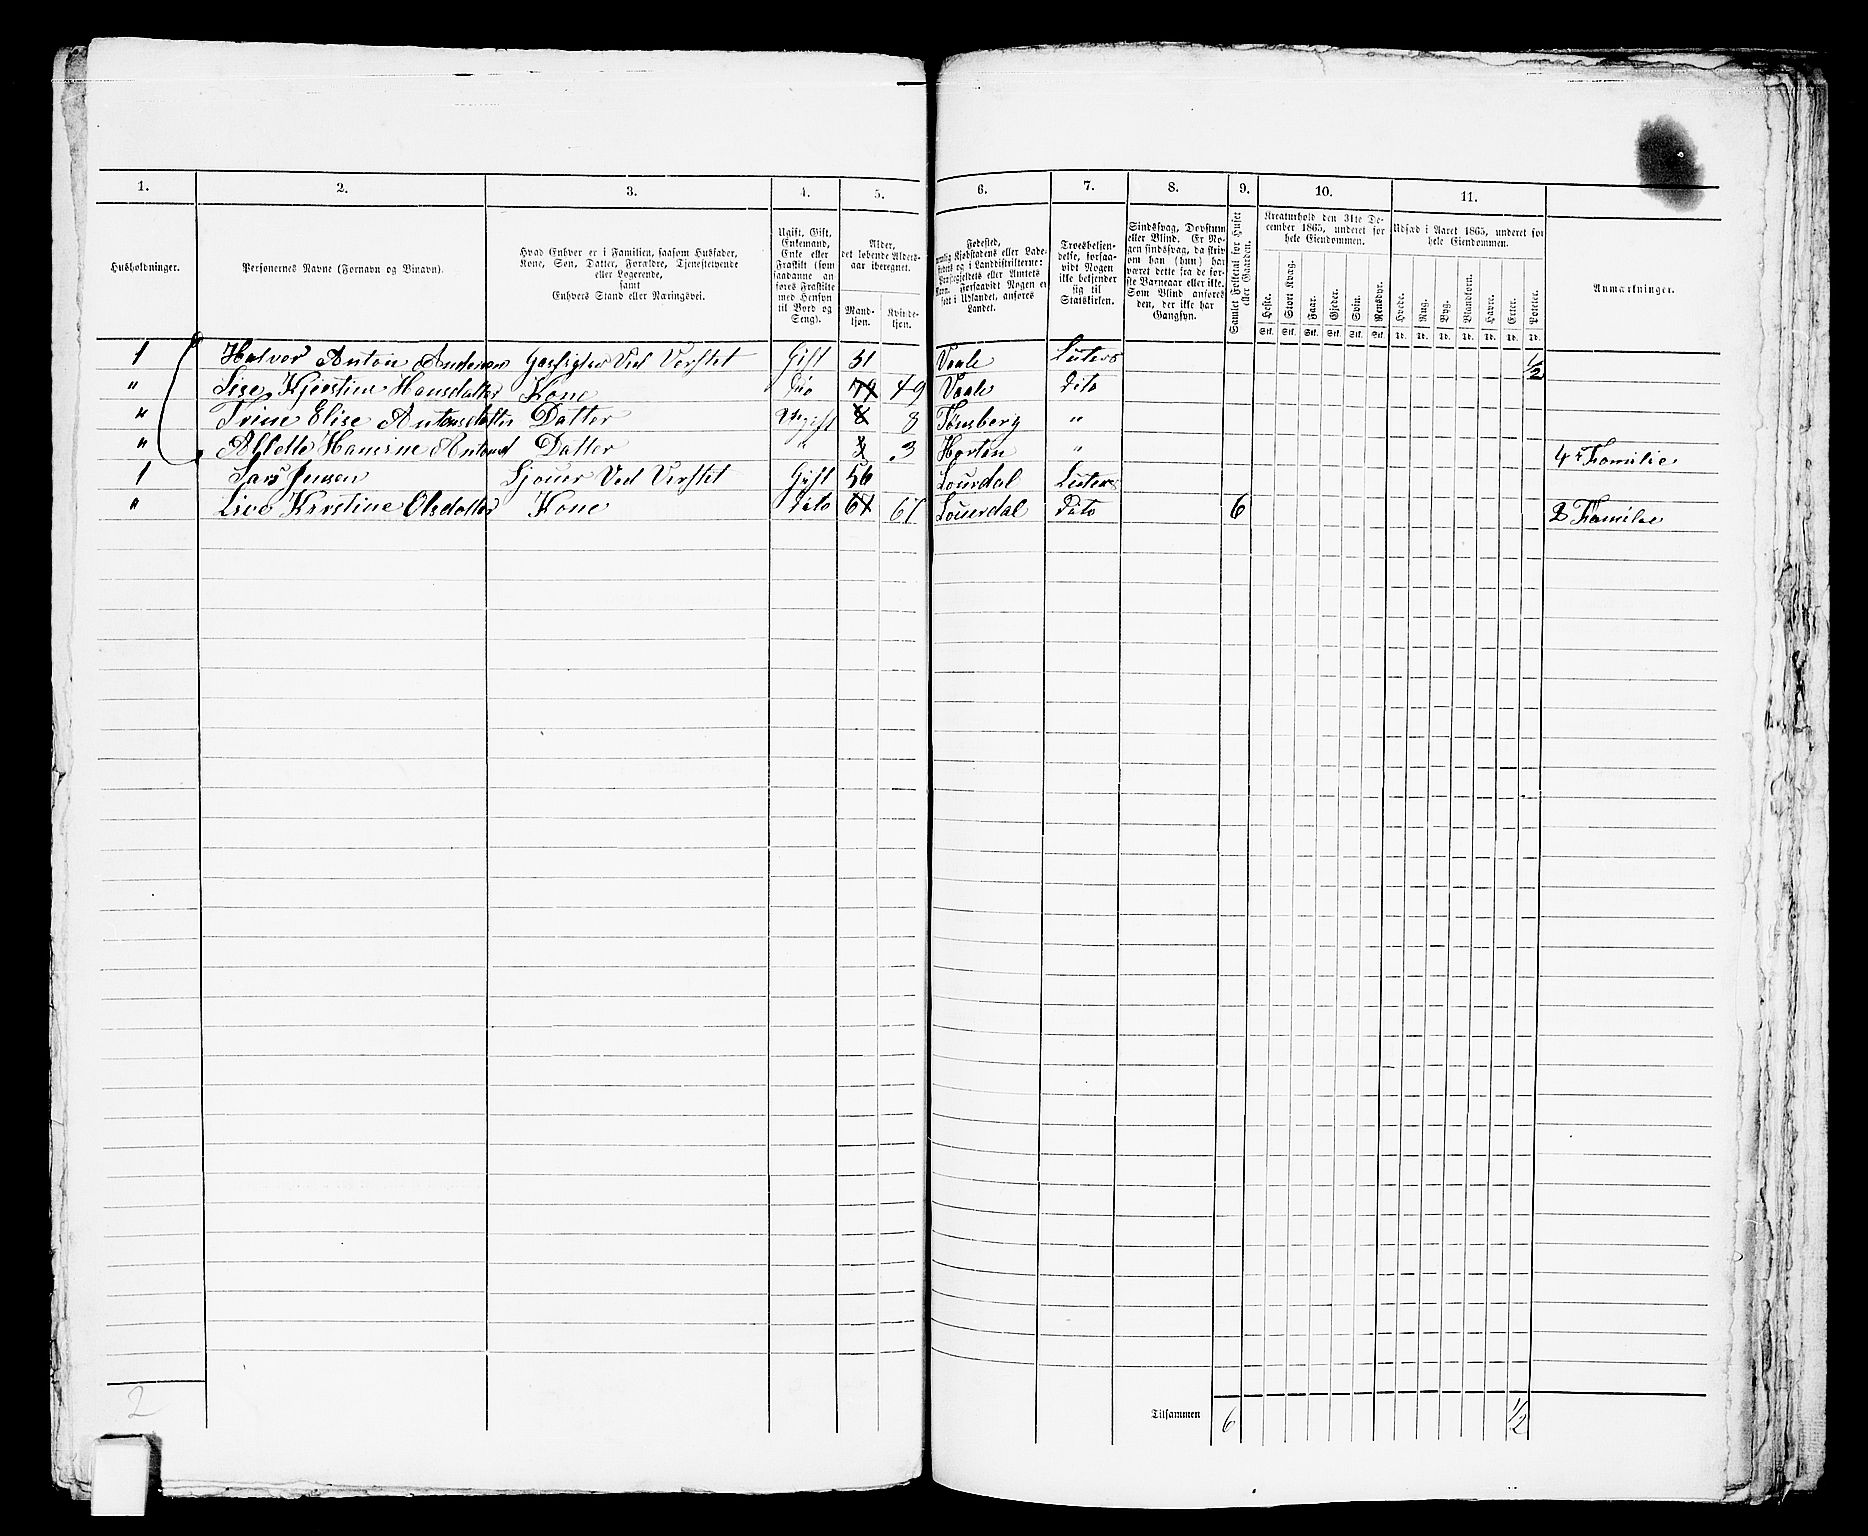 1. 2. 3. 4. 5. 6. 7. 8. 9. 10. 11.
Husholdninger.
Personernes Navne (Fornavn og Binavn).
Hvad Enhver er i Familien, saasom Husfader,
Kone, Søn, Datter, Forældre, Tjenestetyende
eller Logerende,
samt
Enhvers Stand eller Næringsvei.
Ugift, Gift,
Enkemand,
Enke eller
Fraskilt (som
saadanne an-
føres Fraskilte
med Hensyn
til Bord og
Seng).
Alder,
det løbende Alders-
aar iberegnet.
Mand-
kjøn.
Kvinde-
kjøn.
Fødested,
nemlig Kjøbstadens eller Lade-
stedets og i Landdistrikterne:
Præstegjeldets eller Amtets
Navn. Forsaavidt Nogen er
født i Udlandet, anføres
Landet.
Troesbekjen-
delse, forsaa-
vidt Nogen
ikke bekjender
sig til
Statskirken.
Sindssvag, Døvstum
eller Blind. Er No-
gen sindssvag, da skriv
om han (hun) har
været dette fra de før-
ste Barneaar eller ikke.
Som Blind anføres
den, der ikke har
Gangsyn.
Samlet Folketal for Huset
eller Gaarden.
Kreaturhold den 31te De-
cember 1865, underet for
hele Eiendommen.
Heste.
Stort Kvæg.
Faar.
Gjeder.
Svin.
Rensdyr.
Stk. Stk. Stk. Stk. Stk. Stk.
Udsæd i Aaret 1865, underet for
hele Eiendommen.
Hvede.
Rug.
Byg.
Blandkorn.
Havre.
Erter.
Poteter.
Td. Td. Td. Td. Td. Td. Td.
Anmærkninger.
1 Halvor Anton Andersen Gift 51 Vaale Luters 1/2
" Lise Kjerstine Hansdatter Kone Dito 49 Vaale Dito
" Trine Elise Antonsdatter Datter Ugift 8 Tønsberg "
" Hansine Datter " 3 Horten " 4 Familie
1 Lars Jensen Sjouer Ved Verftet Gift 56 Lourdal Luters
" Live Kirstine Olsdatter Kone Dito 67 Lourdal Dito 6 2 Familie
Tilsammen 6 1/2
2